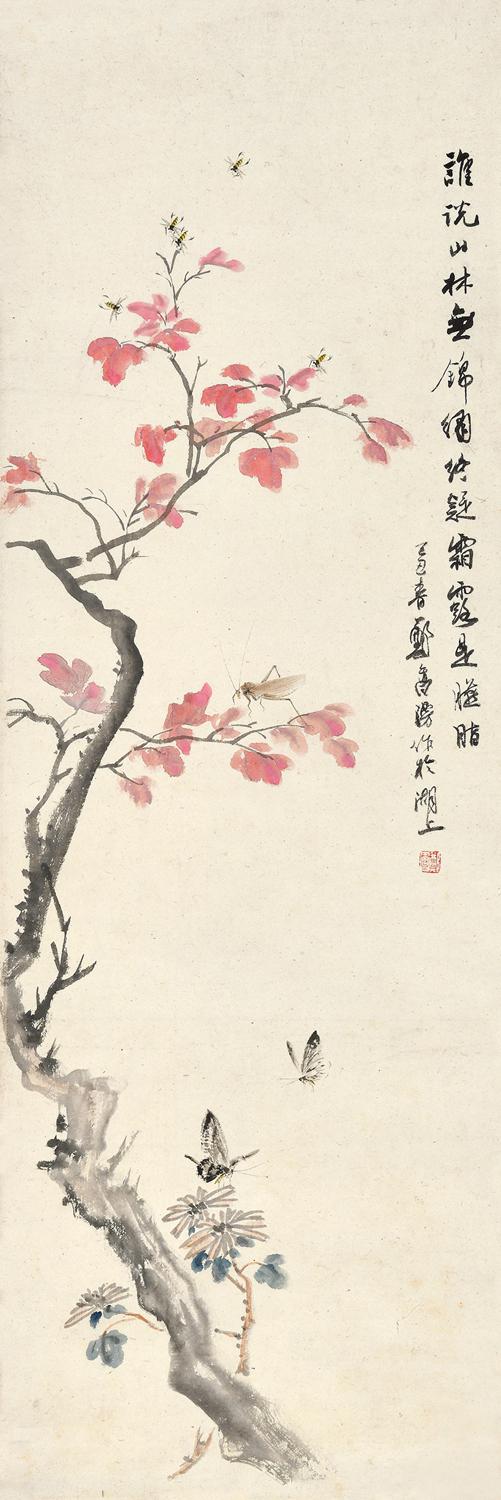 誰說山林無錦繡終疑霜露是臙脂
丁巳春鄭集賓作於湖上